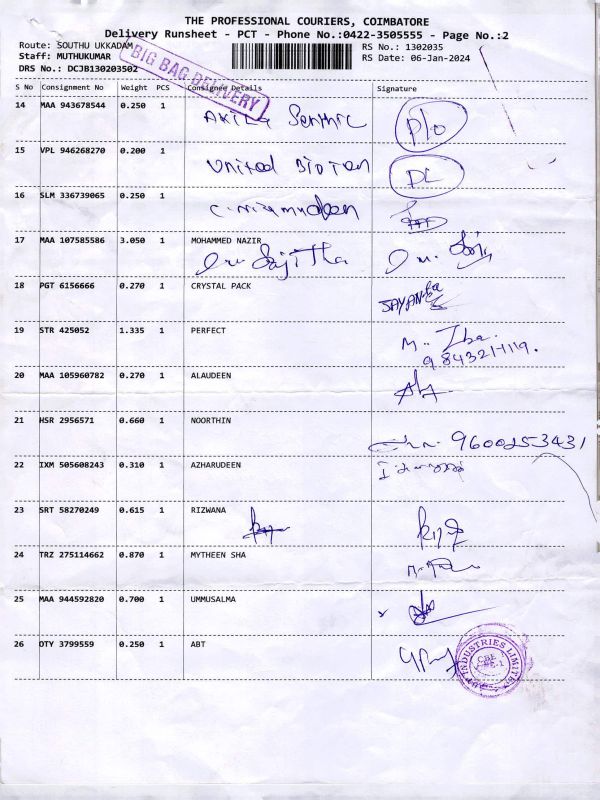 THE PROFESSIONAL COURIERS, COIMBATORE
Delivery Runsheet - PCT - Phone No.:0422-3505555 - Page No.:2
Route: SOUTHU UKKADAM RS No.: 1302035
Staff: MUTHUKUMAR RS Date: 06-Jan-2024
DRS No.: DCJB130203502
BIG BAG DELIVERY
S No Consignment No Weight PCS Consignee Details Signature
14 MAA 943678544 0.250 1 Senthil
15 VPL 946268270 0.200 1 United
16 SLM 336739065 0.250 1 C. nizamudeen
17 MAA 107585586 3.050 1 MOHAMMED NAZIR
Sajitha
18 PGT 6156666 0.270 1 CRYSTAL PACK
19 STR 425052 1.335 1 PERFECT
20 MAA 105960782 0.270 1 ALAUDEEN
21 HSR 2956571 0.660 1 NOORTHIN
9600253431
22 IXM 505608243 0.310 1 AZHARUDEEN
23 SRT 58270249 0.615 1 RIZWANA
24 TRZ 275114662 0.870 1 MYTHEEN SHA
25 MAA 944592820 0.700 1 UMMUSALMA
26 OTY 3799559 0.250 1 ABT
INDUSTRIES LIMITED